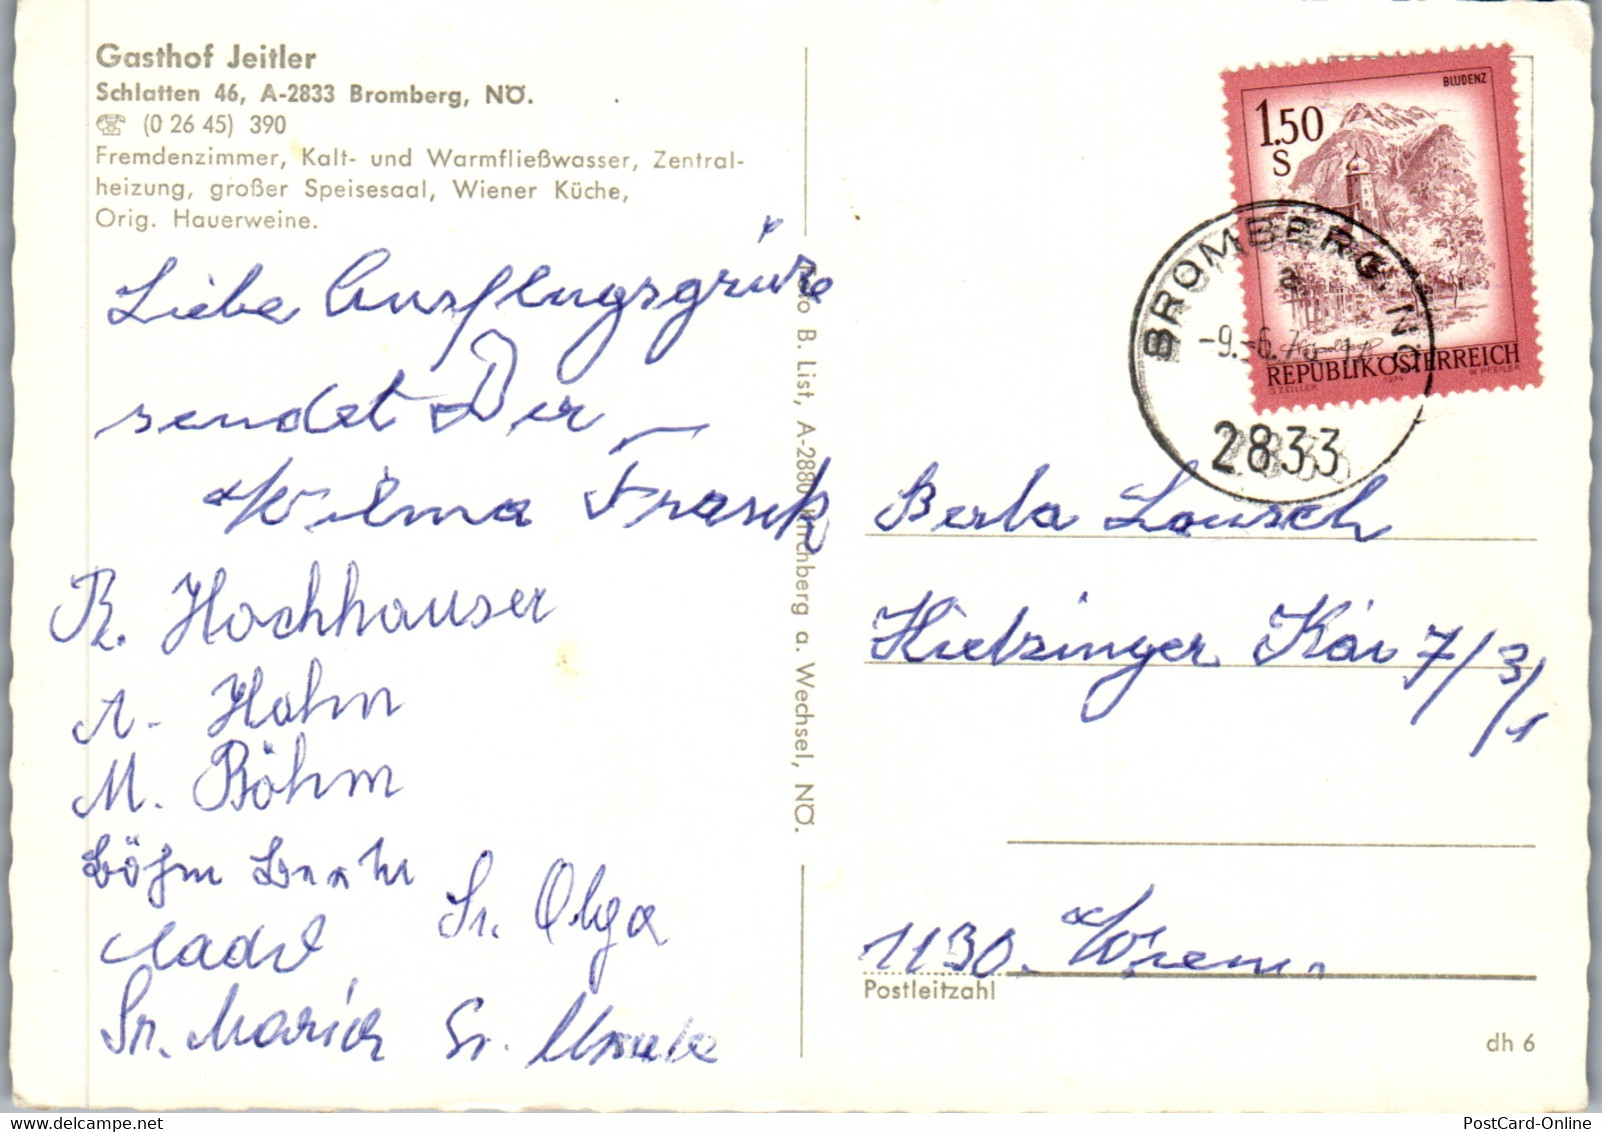 Gasthof Jeitler
Schlatten 46, A-2833 Bromberg, NÖ.
(0 26 45) 390
Fremdenzimmer, Kalt- und Warmfließwasser, Zentral-
heizung, großer Speisesaal, Wiener Küche,
Orig. Hauerweine.
Liebe Ausflugsgrüße
sendet Dir
Wilma Frasch
R. Hochhauser
A. Hahn
M. Böhm
Böhm
Sr. Olga
Sr. Maria Sr.
Foto B. List, A-2880 Kirchberg a. Wechsel, NÖ.
BLUDENZ
1.50
S
REPUBLIK ÖSTERREICH
G. ZEILLER 1974 W. PFEILER
BROMBERG, NÖ
a
-9.-6.7
2833
Berta Lausch
Hietzinger Kai 7/3/1
1130 Wien
Postleitzahl
dh 6
PostCard-Online